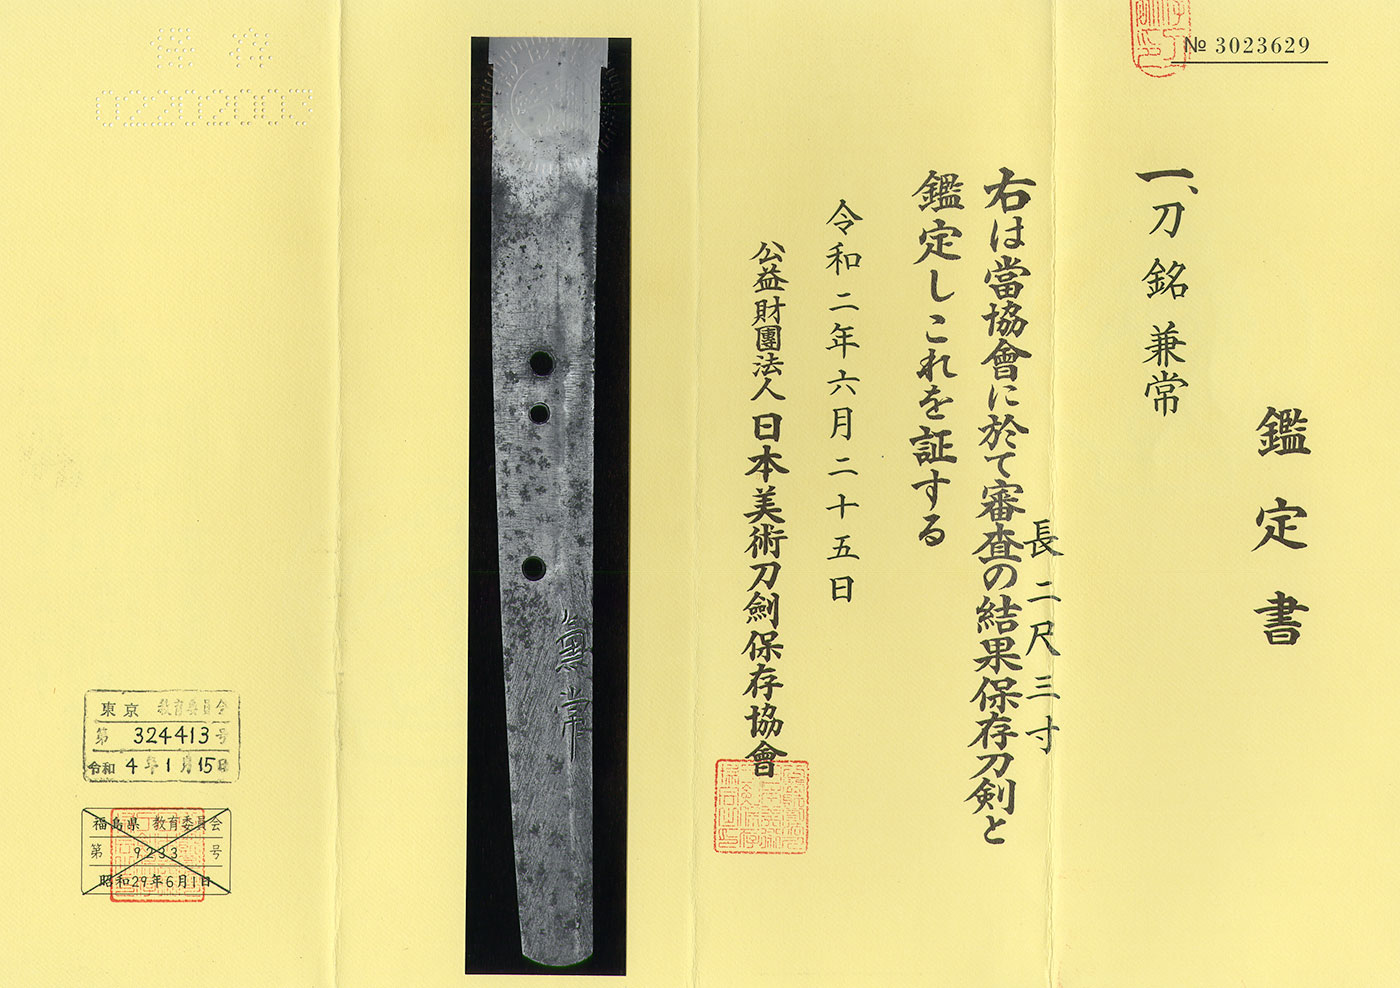 № 3023629
鑑定書
一、刀 銘 兼常
長二尺三寸
右は當協會に於て審査の結果保存刀剣と
鑑定しこれを証する
令和二年六月二十五日
公益財團法人 日本美術刀劍保存協會
兼常
保存
02202003
東京 教育委員会
第 324413 号
令和 4年1月15日
福島県 教育委員会
第 9233 号
昭和29年6月1日